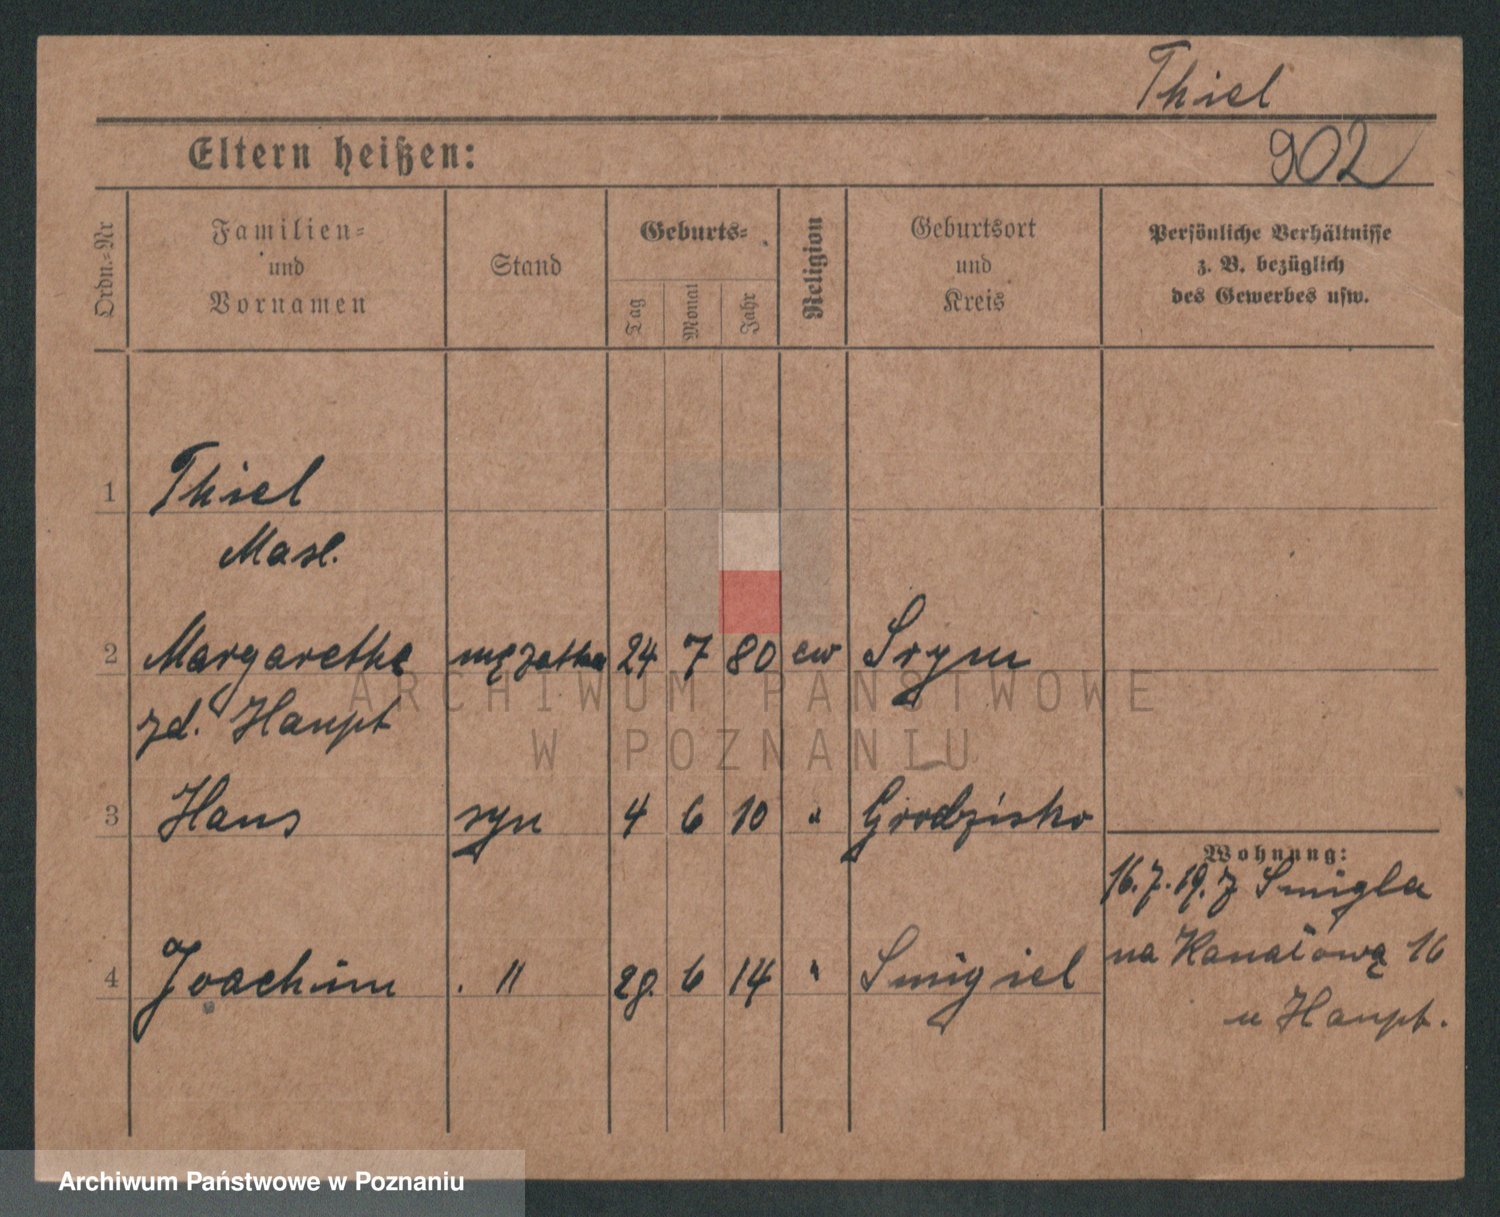 Thiel
902
Eltern heißen:
Ordn.-Nr
Familien-
und
Vornamen
Stand
Geburts-
Tag
Monat
Jahr
Religion
Geburtsort
und
Kreis
Persönliche Verhältnisse
z. B. bezüglich
des Gewerbes usw.
1 Thiel
2 Margarethe mężatka 24 7 80 ew Srym
zd. Haupt
3 Hans syn 4 6 10 " Grodzisko
Wohnung:
16.7.19. z Smigla
na Kanałową 16
u Haupt.
4 Joachim . " 29. 6 14 " Smigiel
ARCHIWUM PAŃSTWOWE
W POZNANIU
Archiwum Państwowe w Poznaniu